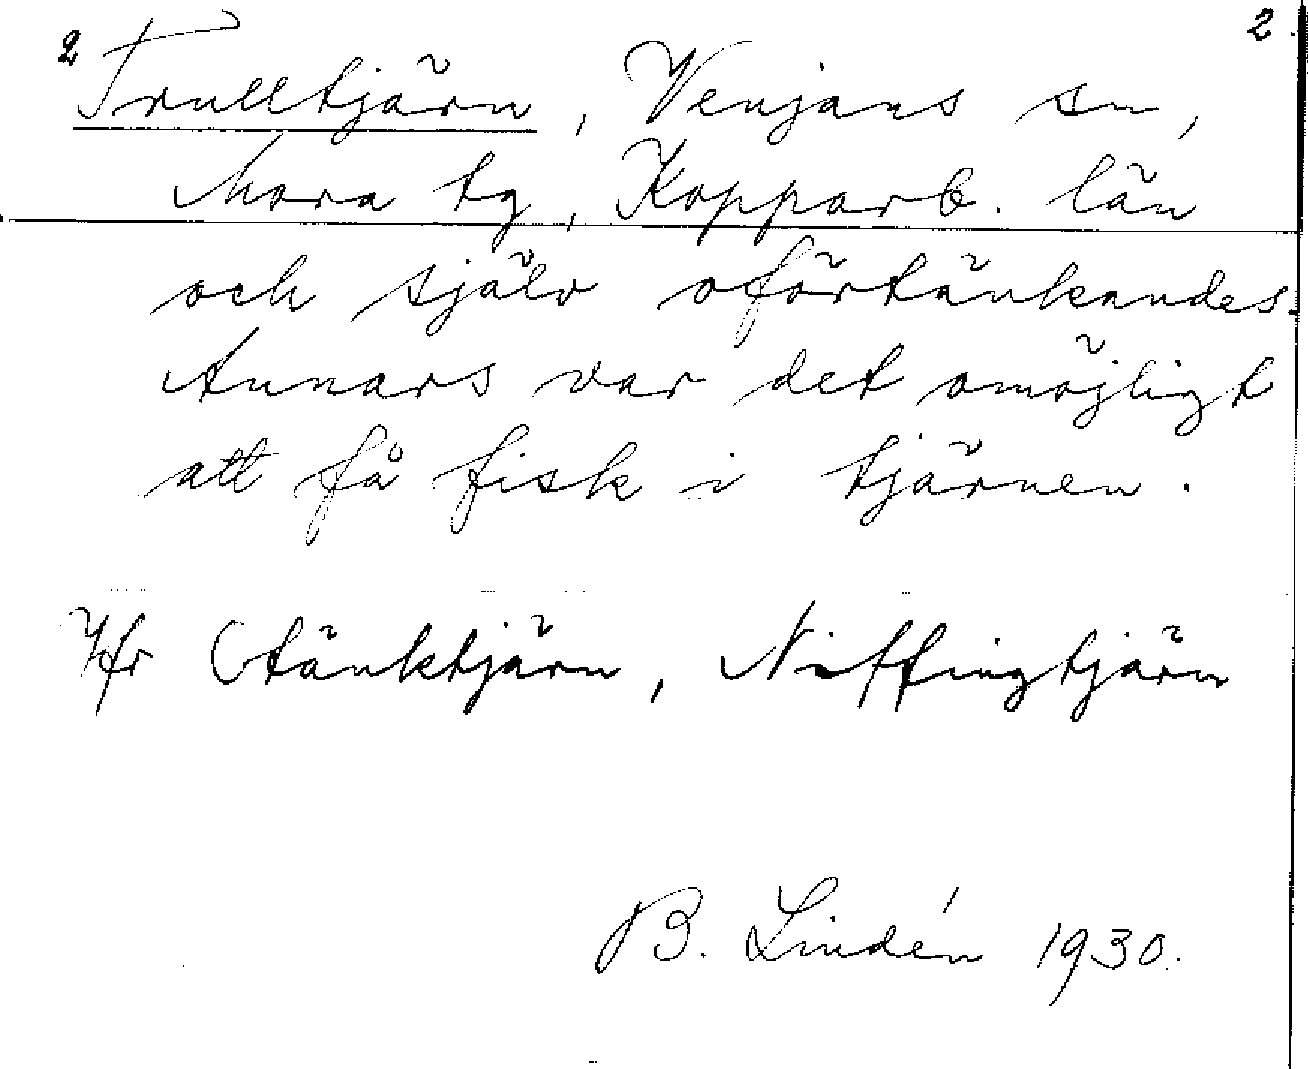 2 2.
Trulltjärn, Venjans sn,
Mora tg, Kopparb. län
och själv oförtänkandes.
Annars var det omöjligt
att få fisk i tjärnen.
Jfr Otänktjärn, Niffingtjärn
B. Lindén 1930.